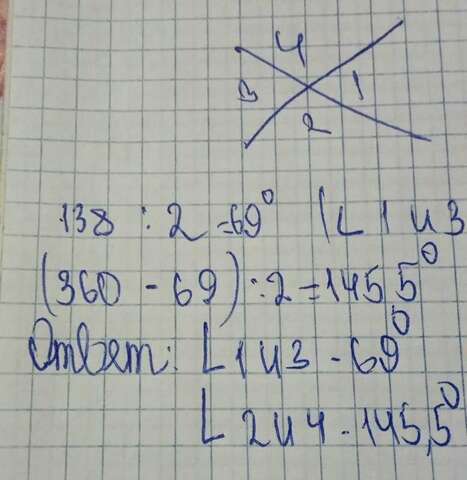 4
3 1
2
138 : 2 = 69° (∟1 и 3
(360 - 69) : 2 = 145 5°
Ответ: ∟1 и 3 - 69°
∟2 и 4 - 145,5°